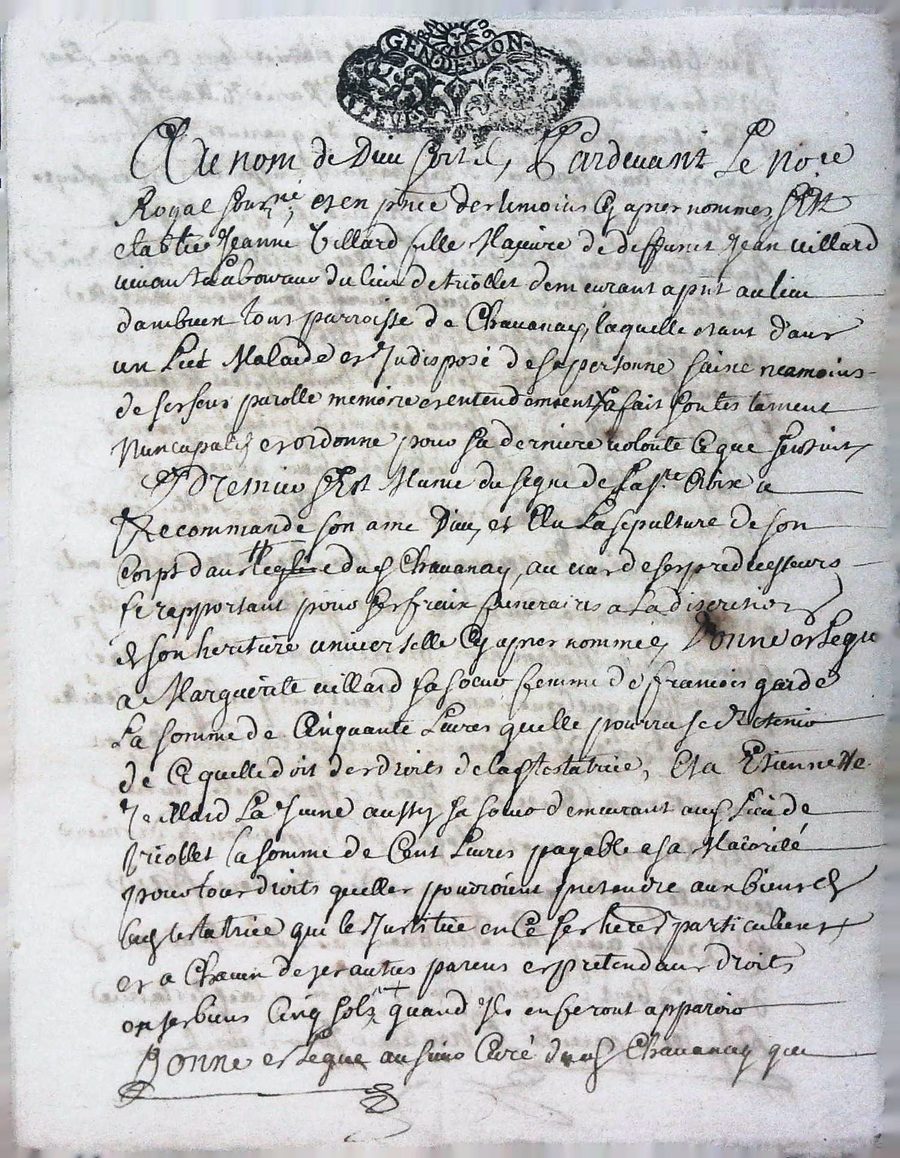 GEN·DE·LION
Au nom de Dieu soit il, Pardevant Le no.re
Royal sousné et en pnce des temoins cy apres nommes sest
etablie Jeanne Villard fille Majeure de deffunct Jean villard
vivant Laboureur du lieu de triollet demeurant apnt au lieu
dambuen tous parroisse de Chavanay, laquelle etant dans
un Lict Malade et Indisposé de sa personne saine neamoins
de ses sens parolle memoire et entendement, a fait son testament
Nuncupatif et ordonne pour sa derniere volonté ce que sensuit
Premier sest Munie du segne de la ste Croix a
Recommande son ame Dieu, et Elu La sepulture de son
corps dans leglise dud Chavanay, au vas de ses predecesseurs
se rapportant pour ses fraix funeraires a La discretion
de son heritiere universelle cy apres nommée, Donne et Legue
a Marguerite villard sa soeur femme de francois garde
La somme de Cinquante Livres quelle pourra se Retenir
de Ce quelle doit des droits de lad testatrice, Et a Etiennette
Veillard La Jeune aussy sa soeur demeurant aud Lieu de
triollet la somme de Cent Livres payable a sa Majorité
pour tous droits quelles poudroient pretendre aux biens de
lad testatrice qui les Institue en Ce ses heres particulieres
et a Chacun de ses autres parens et pretendans droits
en ses biens Cinq solz quand Ils en feront apparoir
Donne et Legue au sieur Curé dud Chavanay qui